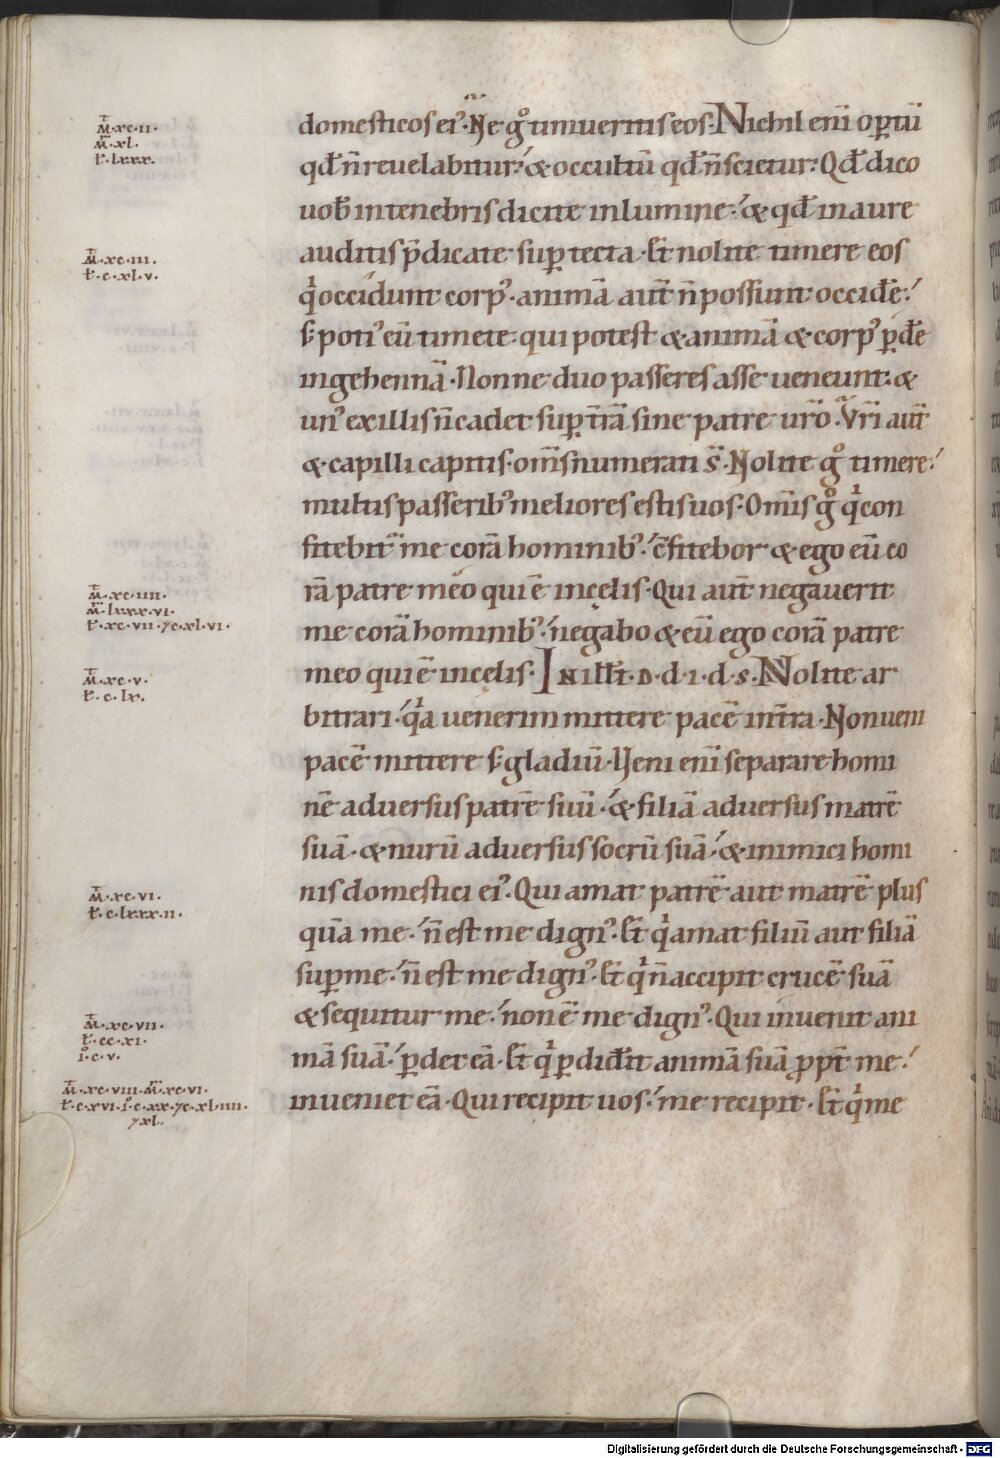 M̄·xc·ii·
M̄·xl·
t̄·lxxx·
M̄·xc·iii·
t̄·c·xl·v·
M̄·xc·iiii·
M̄·lxxx·vi·
t̄·xc·vii·7c·xl·vi·
M̄·xc·v·
t̄·c·lx·
M̄·xc·vi·
t̄·c·lxxx·ii·
M̄·xc·vii·
t̄·cc·xi·
i̊·c·v·
M̄·xc·viii·M̄·xc·vi·
t̄·c·xvi·i̊·c·xx·7c·xl·iiii·
7xl·
domesticos ei᾿·Ne gͦ timueritis eos·Nichil eni̅ oꝑtu̅
qd̅ n̅ reuelabitur·́ & occultu̅ qd̅ n̅ scietur·Qd̅ dico
uob̅ in tenebris dicite in lumine·́ & qd̅ in aure
auditis p̅dicate suꝑ tecta·Et nolite timere eos
qͥ occidunt corp᾿·anima̅ aut̅ n̅ possunt occid̅e·́
s; poti᾿ eu̅ timete·qui potest & anima̅ & corp᾿ ꝑd̅e
in gehenna̅·Nonne duo passeres asse ueneunt·&
un᾿ ex illis n̅ cadet suꝑ t̅ra̅ sine patre ur̅o·Vr̅i aut̅
& capilli capitis·om̅s numerati s̅·Nolite gͦ timere·́
multis passerib᾿ meliores estis uos·Om̅is gͦ qͥ con
fitebit̅ me cora̅ hominib᾿·́ c̅fitebor & ego eu̅ co
ra̅ patre meo qui e̅ in cęlis·Qui aut̅ negauerit
me cora̅ hominib᾿·́ negabo & eu̅ ego cora̅ patre
meo qui e̅ in cęlis·IN ill̅·t̅·D·d·i·d·s·Nolite ar
bitrari·́ qͣa uenerim mittere pace̅ in t̅ra·Non ueni
pace̅ mittere s; gladiu̅·Veni eni̅ separare homi
ne̅ aduersus patre̅ suu̅·́ & filia̅ aduersus matre̅
sua̅·& nuru̅ aduersus socru̅ sua̅·́ & inimici homi
nis domestici ei᾿·Qui amat patre̅ aut matre̅ plus
qua̅ me·́ n̅ est me dign᾿·Et qͥ amat filiu̅ aut filia̅
suꝑ me·́ n̅ est me dign᾿·Et qͥ n̅ accipit cruce̅ sua̅
& sequitur me·́ non e̅ me dign᾿·Qui inuenit ani
ma̅ sua̅·́ ꝑdet ea̅·Et qͥ ꝑdid̅it anima̅ sua̅ ꝓpt̅ me·́
inueniet ea̅·Qui recipit uos·́ me recipit·Et qͥ me
Digitalisierung gefördert durch die Deutsche Forschungsgemeinschaft - DFG